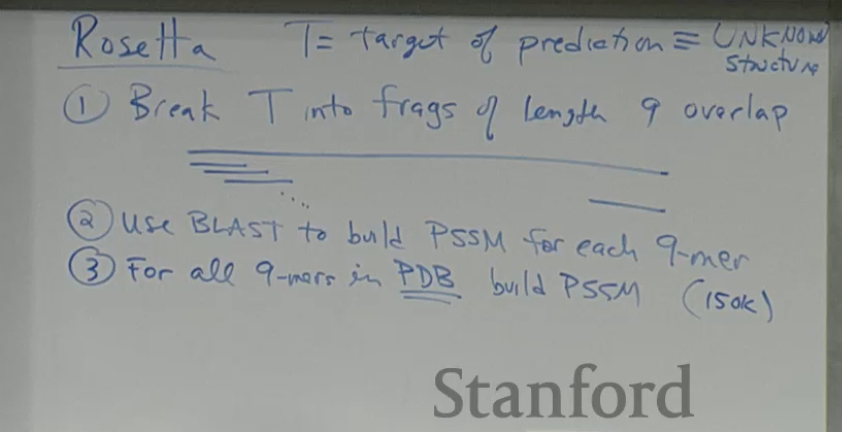 Rosetta T = target of prediction ≡ UNKNOWN
structure
① Break T into frags of length 9 overlap
② Use BLAST to build PSSM for each 9-mer
③ For all 9-mers in PDB build PSSM (150k)
Stanford